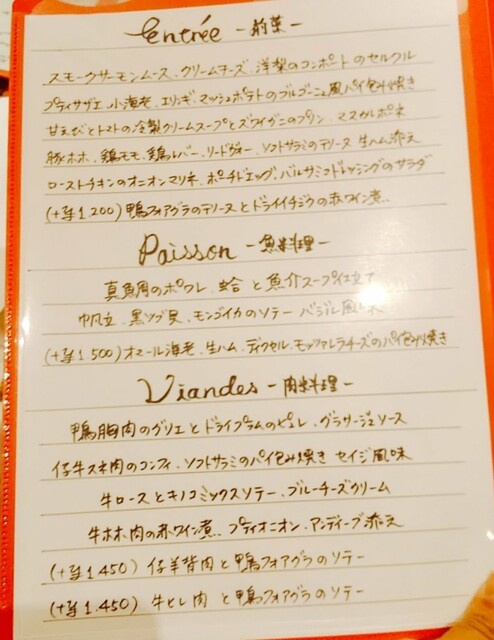 Entrée -前菜-
スモークサーモンムース、クリームチーズ、洋梨のコンポートのセルクル
プティサザエ、小海老、エリンギ、マッシュポテトのブルゴーニュ風パイ包み焼き
甘えびとトマトの冷製クリームスープとズワイガニのプリン マスカルポーネ
豚ホホ、鶏モモ、鶏レバー、リードヴォー、ソフトサラミのテリーヌ 生ハム添え
ローストチキンのオニオンマリネ、ポーチドエッグ、バルサミコドレッシングのサラダ
(+¥1,200)鴨フォアグラのテリーヌとドライイチジクの赤ワイン煮
Paisson -魚料理-
真鯛のポワレ 蛤と魚介スープ仕立て
帆立、黒ツブ貝、モンゴイカのソテー バジル風味
(+¥1500)オマール海老、生ハム、デュクセル、モッツァレラチーズのパイ包み焼き
Viandes -肉料理-
鴨胸肉のグリエとドライプラムのピュレ、グラサージュソース
仔牛スネ肉のコンフィ、ソフトサラミのパイ包み焼き セイジ風味
牛ロースとキノコミックスソテー、ブルーチーズクリーム
牛ホホ肉の赤ワイン煮、プティオニオン、アンディーブ添え
(+¥1,450) 仔羊背肉と鴨フォアグラのソテー
(+¥1,450) 牛ヒレ肉と鴨フォアグラのソテー